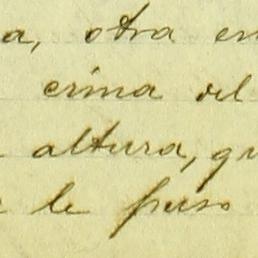 a, otra en
crima del
altura, qu
le puso